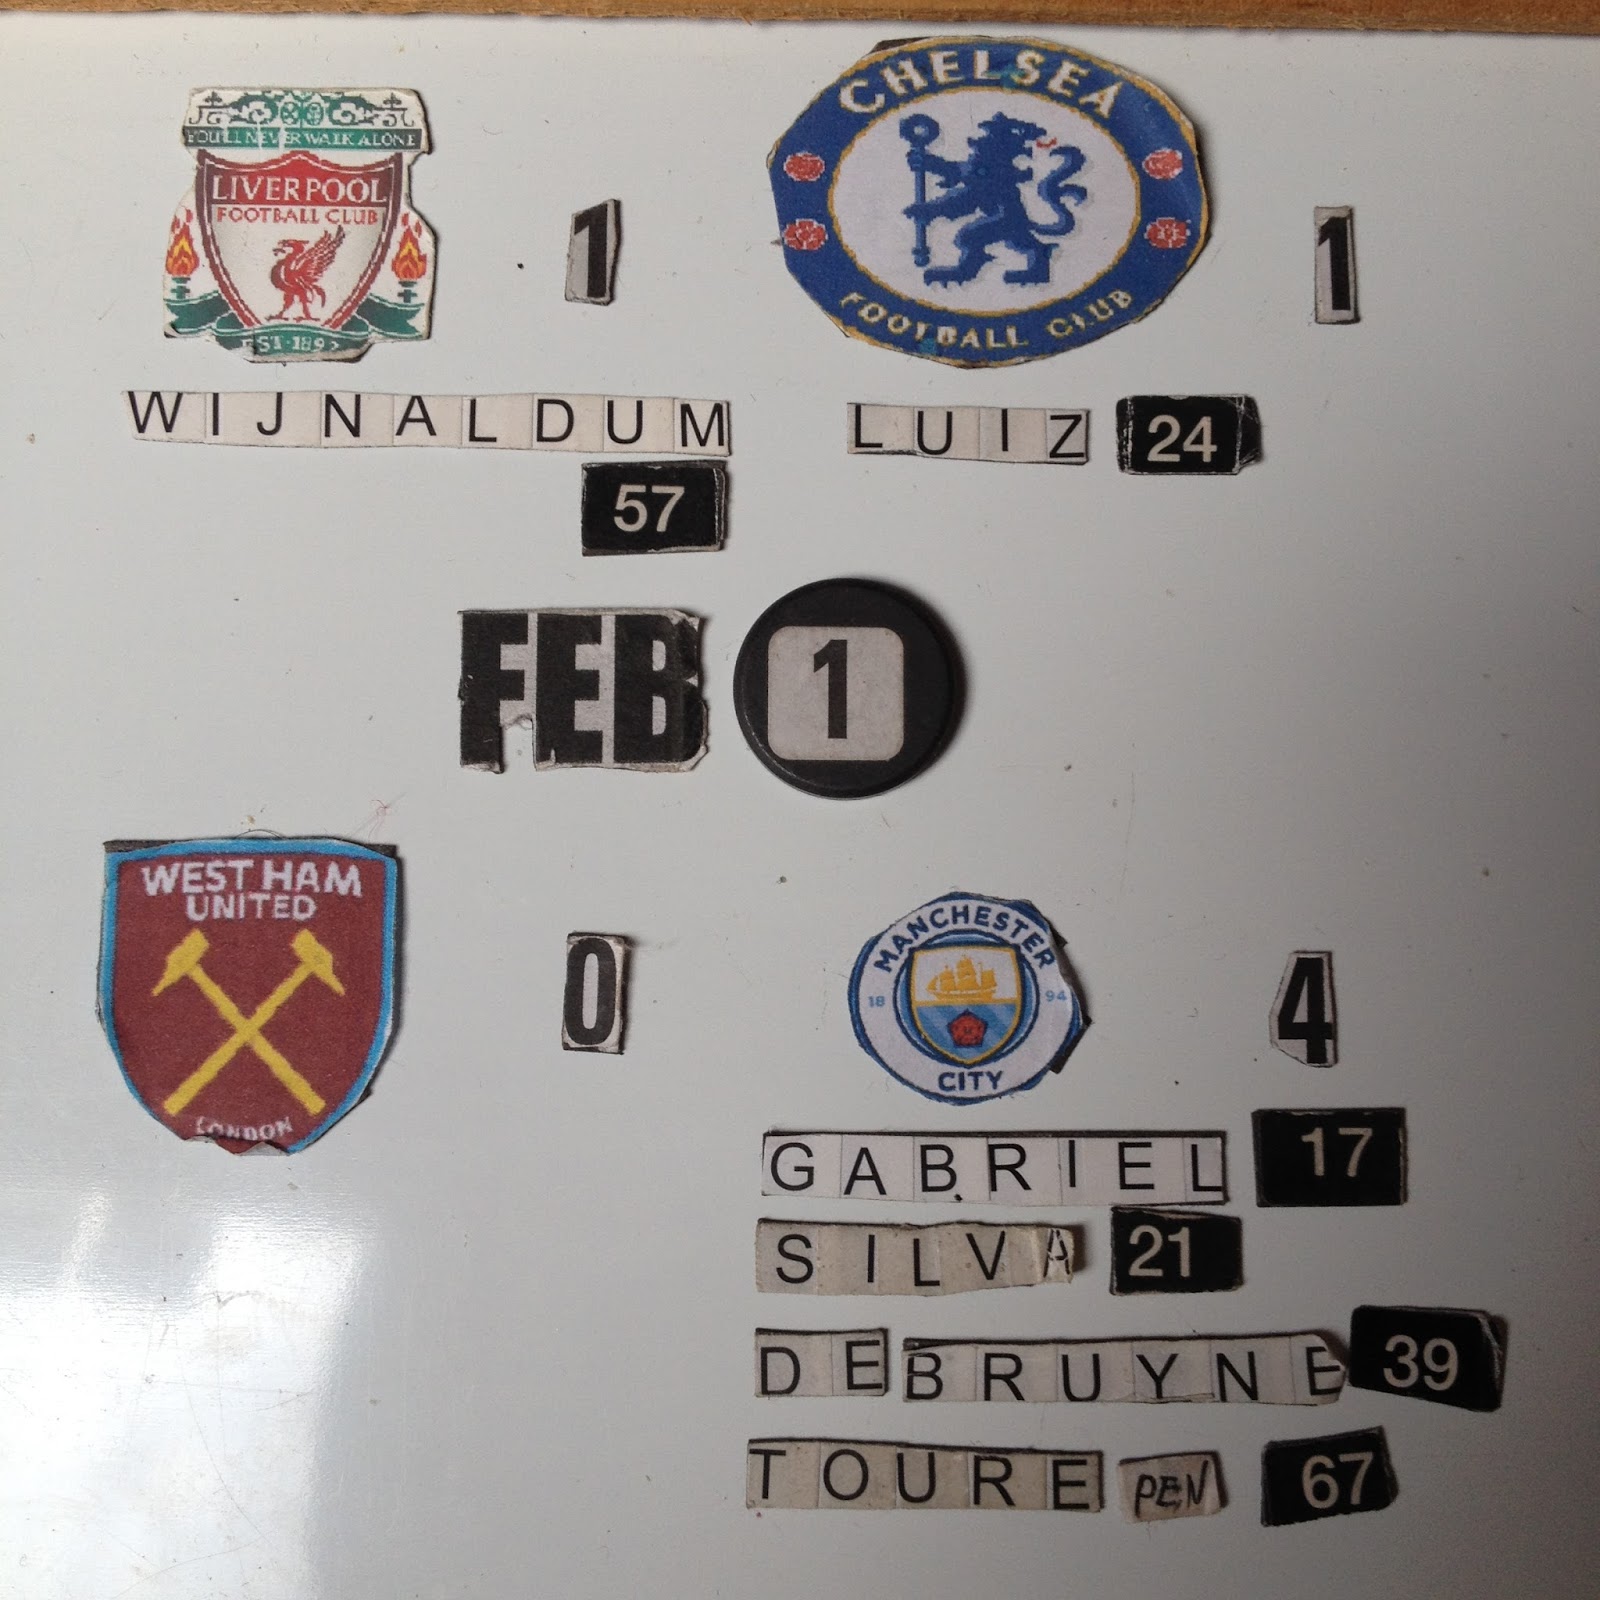 YOU'LL NEVER WALK ALONE
LIVERPOOL
FOOTBALL CLUB
EST·1892
1
CHELSEA
FOOTBALL CLUB
1
WIJNALDUM
57
LUIZ 24
FEB 1
WEST HAM
UNITED
LONDON
0
MANCHESTER
18 94
CITY
4
GABRIEL 17
SILVA 21
DE BRUYNE 39
TOURE PEN 67